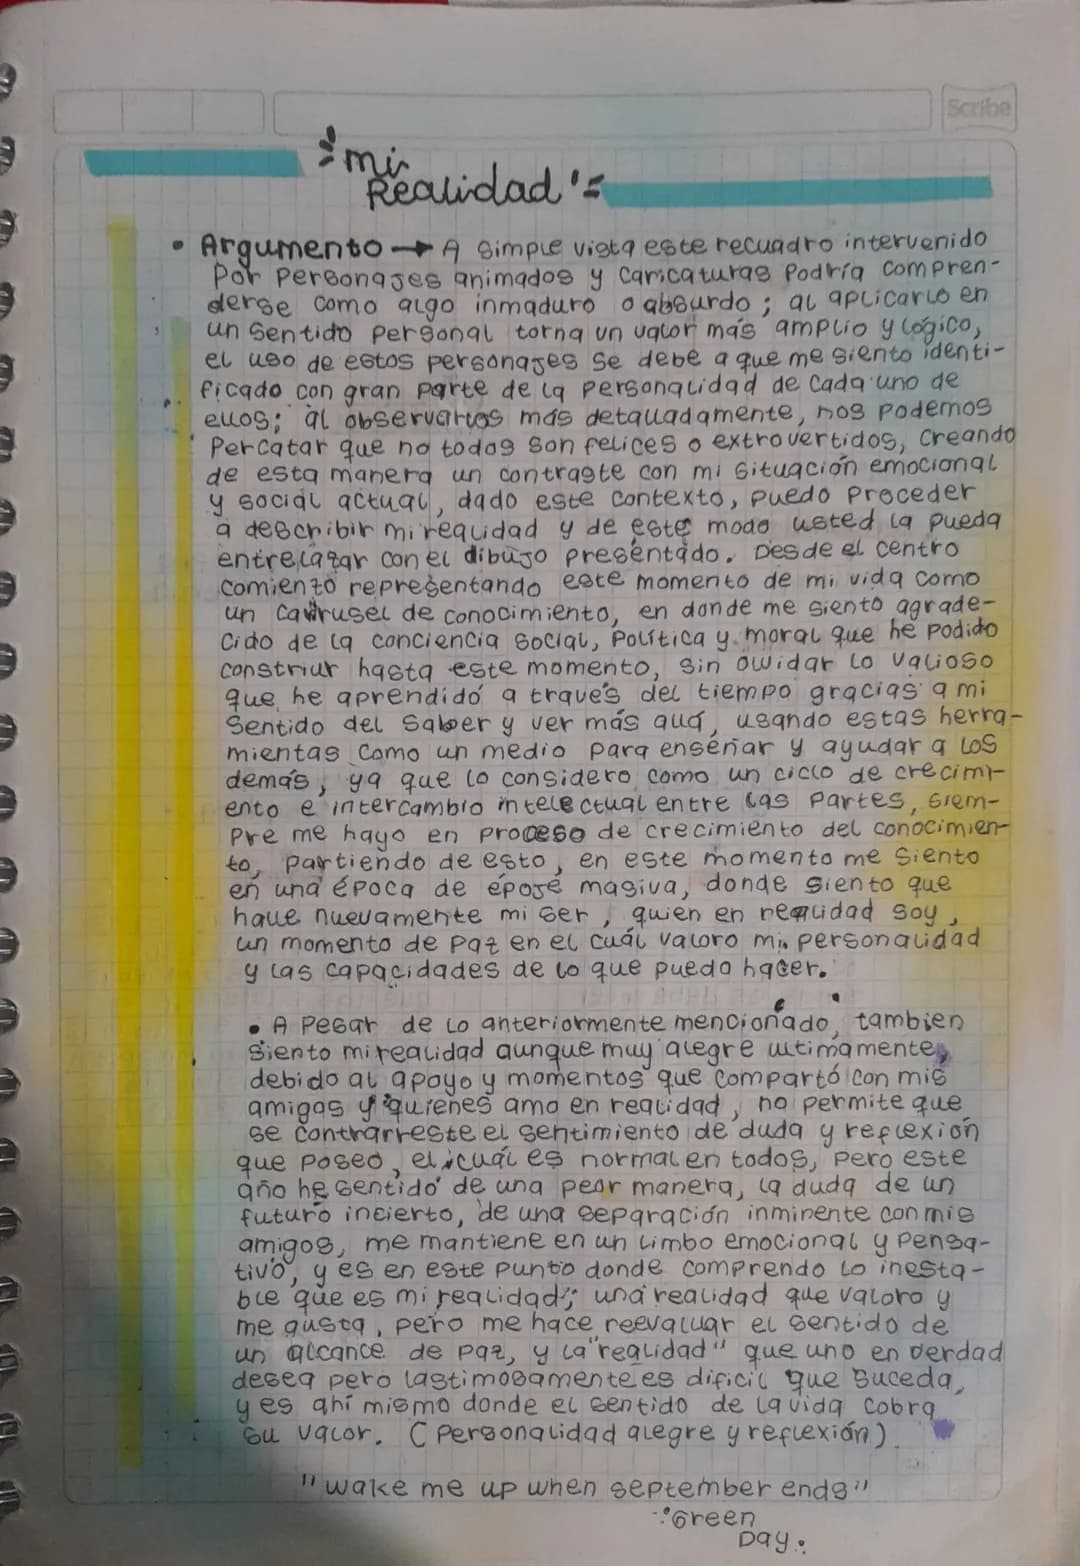 Scribe
mi
Realidad
• Argumento → A simple vista este recuadro intervenido
Por Personajes animados y caricaturas Podría compren-
derse como algo inmaduro o absurdo; al aplicarlo en
un sentido Personal torna un valor más amplio y lógico,
el uso de estos personajes se debe a que me siento identi-
ficado con gran parte de la Personalidad de cada uno de
ellos; al observarlos más detalladamente, nos podemos
Percatar que no todos son felices o extrovertidos, creando
de esta manera un contraste con mi situación emocional
y social actual, dado este contexto, puedo proceder
a describir mi realidad y de este modo usted la pueda
entrelazar con el dibujo presentado. Desde el centro
comienzo representando este momento de mi vida como
un carrusel de conocimiento, en donde me siento agrade-
cido de la conciencia social, Política y moral que he podido
constriur hasta este momento, sin olvidar lo valioso
que he aprendido a través del tiempo gracias a mi
sentido del saber y ver más allá, usando estas herra-
mientas como un medio para enseñar y ayudar a los
demás, ya que lo considero como un ciclo de crecimi-
ento e intercambio intelectual entre las partes, siem-
pre me hayo en proceso de crecimiento del conocimien-
to, partiendo de esto, en este momento me siento
en una época de epojé masiva, donde siento que
halle nuevamente mi ser, quien en realidad soy,
un momento de paz en el cuál valoro mi personalidad
y las capacidades de lo que puedo hacer.
• A Pesar de lo anteriormente mencionado, tambien
siento mi realidad aunque muy alegre ultimamente,
debido al apoyo y momentos que compartó con mis
amigos y quienes amo en realidad, no permite que
se contrarreste el sentimiento de duda y reflexión
que poseo, el cuál es normal en todos, pero este
año he sentido de una peor manera, la duda de un
futuro incierto, de una separación inminente con mis
amigos, me mantiene en un limbo emocional y pensa-
tivo, y es en este punto donde comprendo lo inesta-
ble que es mi realidad; una realidad que valoro y
me gusta, pero me hace reevaluar el sentido de
un alcance de paz, y la "realidad" que uno en verdad
desea pero lastimosamente es dificil que suceda,
y es ahí mismo donde el sentido de la vida cobra
su valor. (Personalidad alegre y reflexión)
"wake me up when september ends"
Green
Day.